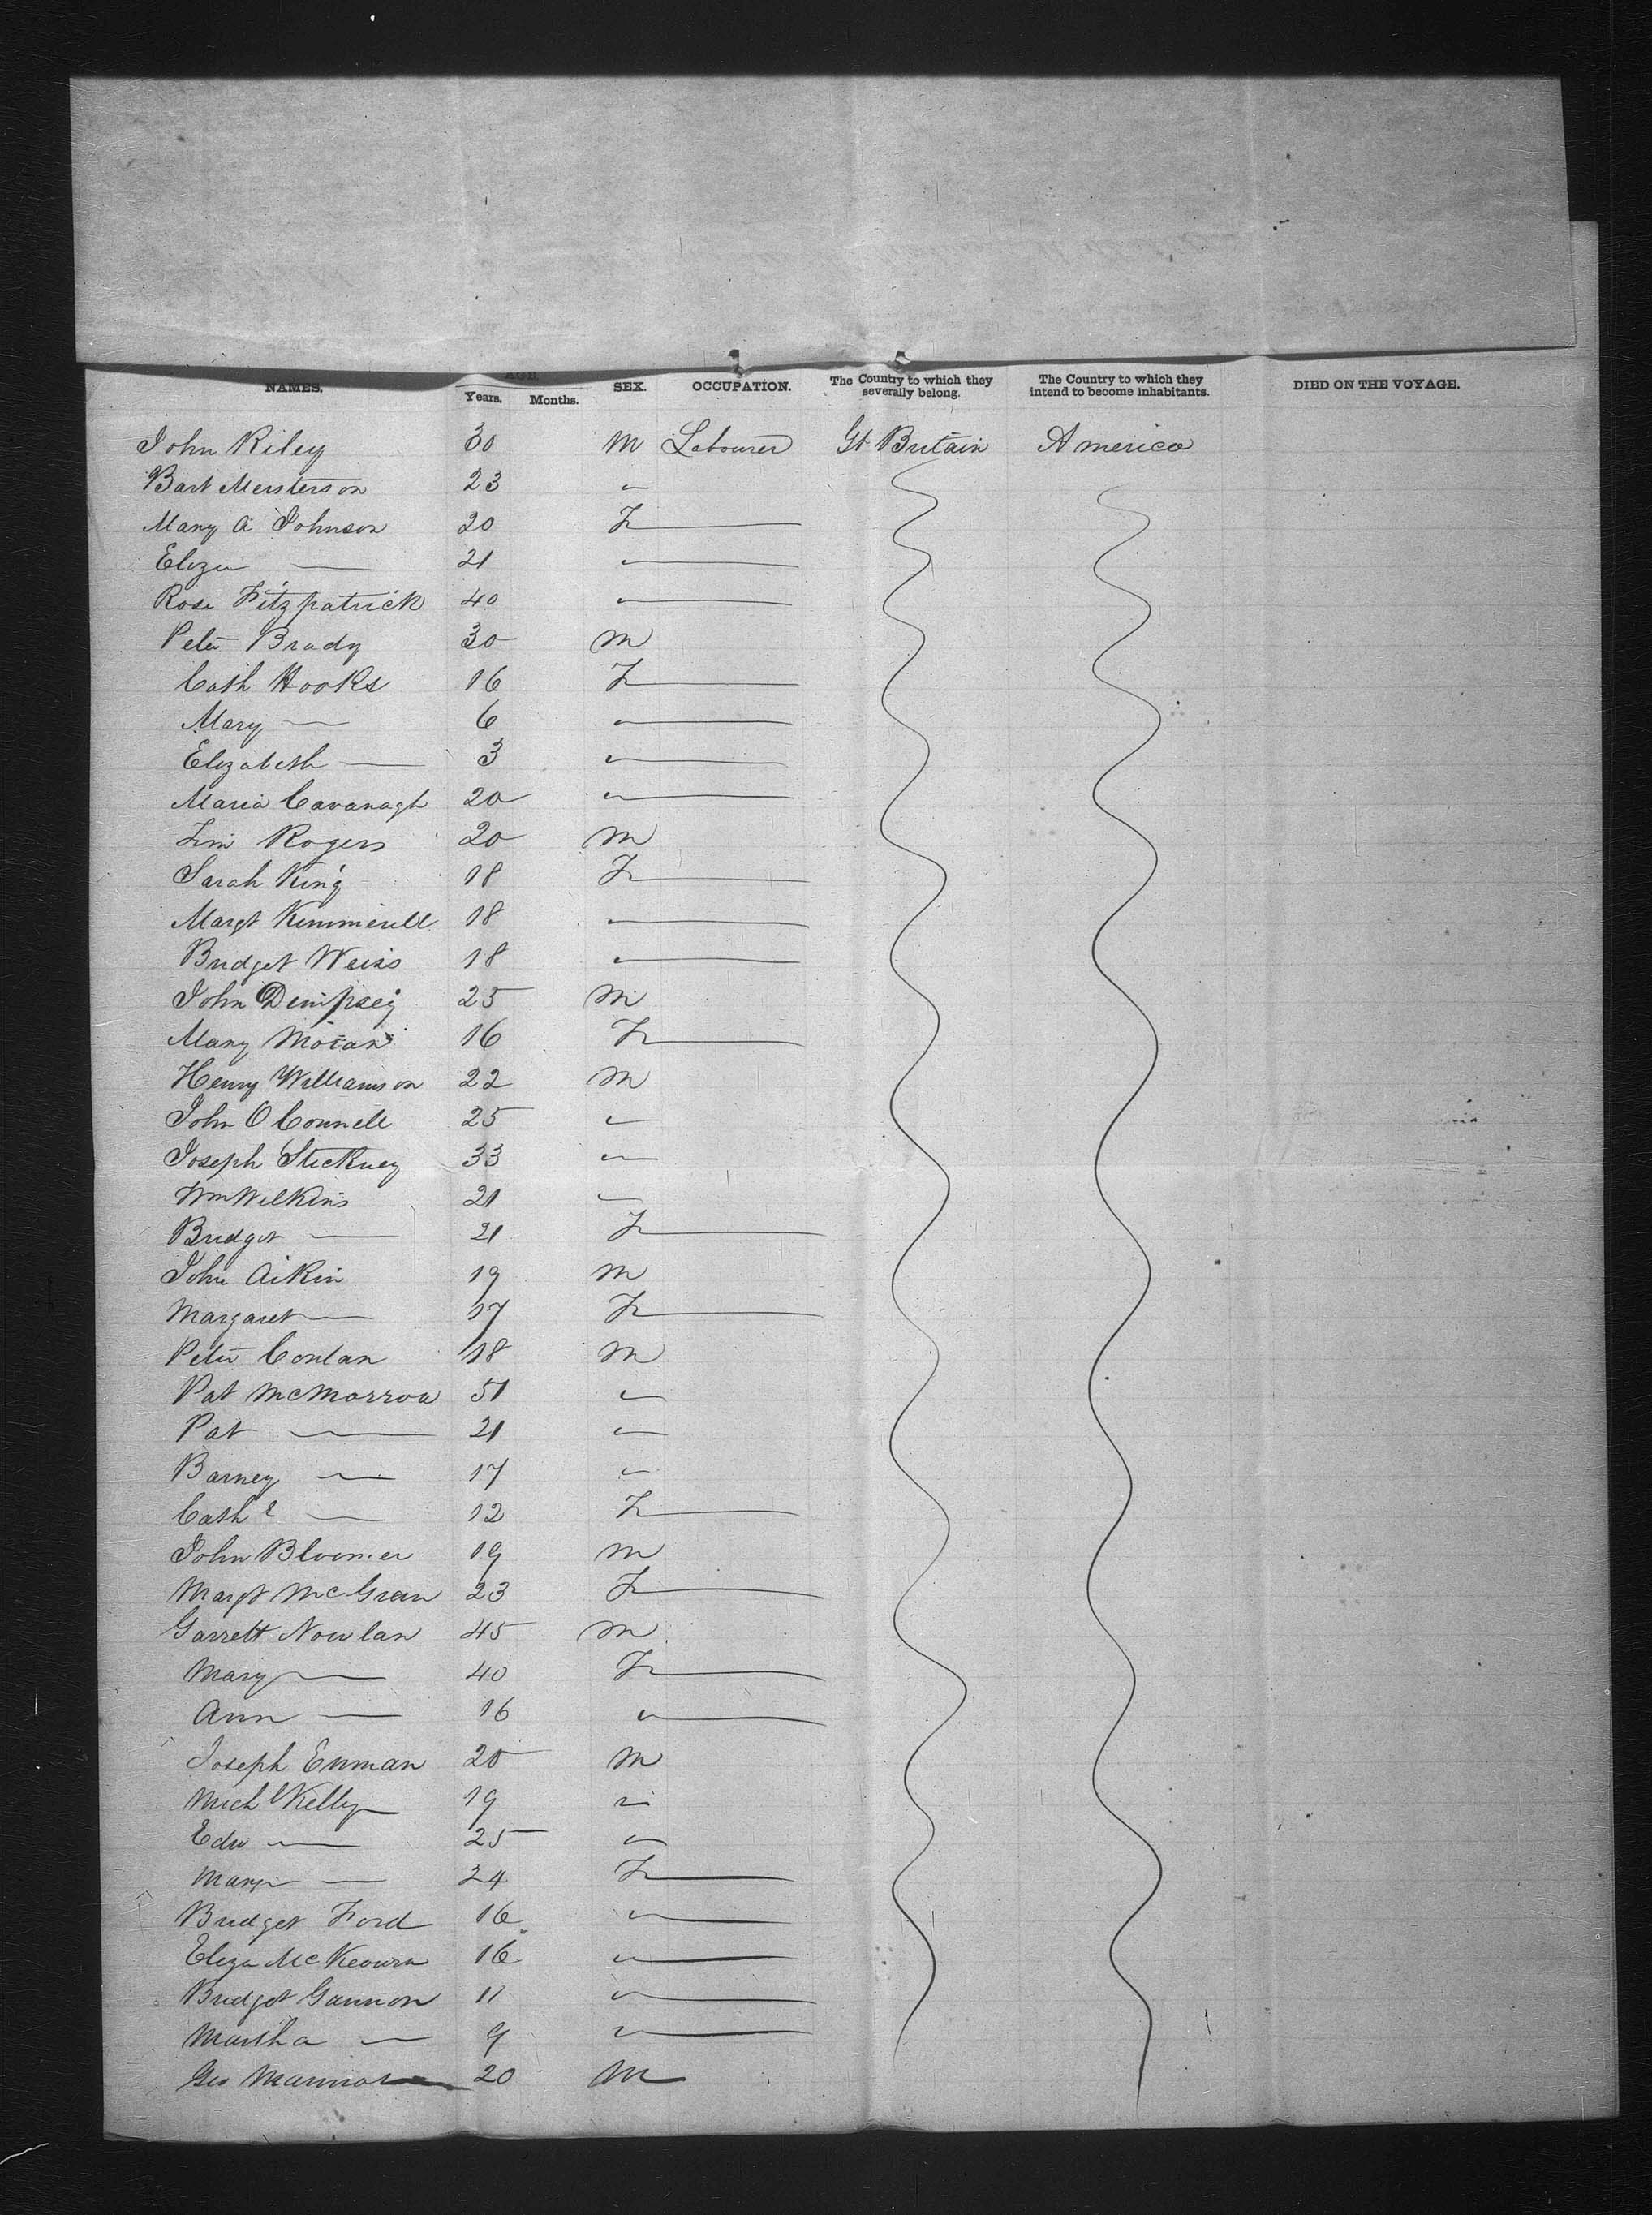 NAMES. AGE Years. Months. SEX. OCCUPATION. The Country to which they severally belong. The Country to which they intend to become inhabitants. DIED ON THE VOYAGE.
John Riley 30 M Labourer Gt Britain America
Bart Mersterson 23 "
Mary A Johnson 20 F —
Eliza — 21 " —
Rose Fitzpatrick 40 " —
Peter Brady 30 M
Cath Hooks 16 F —
Mary — 6 " —
Elizabeth — 3 " —
Maria Cavanagh 20 " —
Jim Rogers 20 M
Sarah King 18 F —
Margt 18 " —
Bridget Weiss 18 " —
John Dempsey 25 M
Mary Moran 16 F —
Henry Williamson 22 M
John O Connell 25 "
Joseph Stickney 33 "
Wm Wilkins 21 "
Bridget — 21 F —
John Aikin 19 M
Margaret — 17 F —
Peter Conlan 18 M
Pat McMorrow 51 "
Pat — 21 "
Barney — 17 "
Cathe — 12 F —
John Bloomer 19 M
Margt McGran 23 F —
Garrett Nowlan 45 M
Mary — 40 F —
Ann — 16 " —
Joseph Enman 20 M
Michl Kelly 19 "
Edw — 25 "
Mary — 24 F —
Bridget Ford 16 " —
Eliza McKeown 16 " —
Bridget Gannon 11 " —
Martha — 9 " —
Geo 20 M